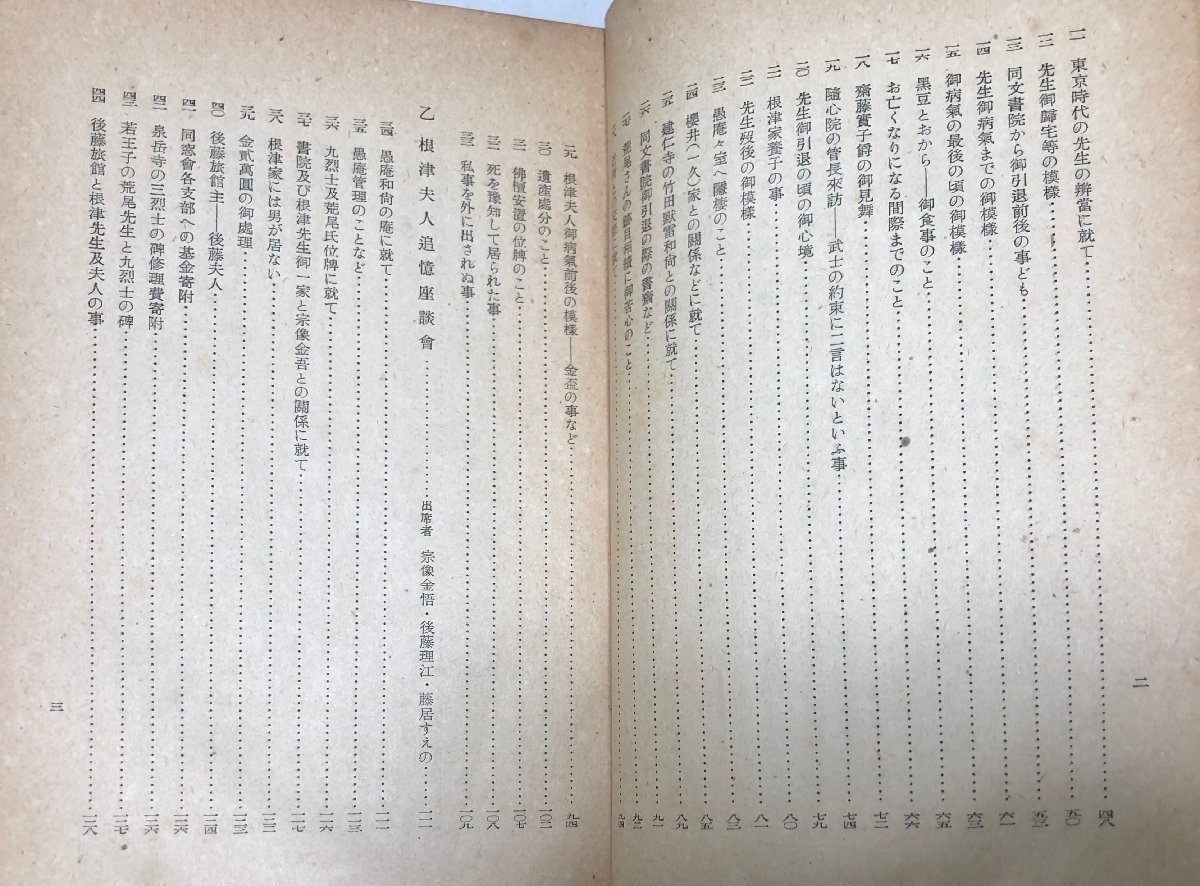 二
一一 東京時代の先生の辨當に就て……四八
一二 先生御歸宅等の模樣……五〇
一三 同文書院から御引退前後の事ども……五三
一四 先生御病氣までの御模樣……六一
一五 御病氣の最後の頃の御模樣……六三
一六 黑豆とおから――御食事のこと……六五
一七 お亡くなりになる間際までのこと……六六
一八 齋藤實子爵の御見舞……七二
一九 隨心院の管長來訪――武士の約束に二言はないといふ事……七四
二〇 先生御引退の頃の御心境……七九
二一 根津家養子の事……八〇
二二 先生歿後の御模樣……八一
二三 愚庵々室へ隱棲のこと……八三
二四 櫻井(一久)家との關係などに就て……八五
二五 建仁寺の竹田默雷和尙との關係に就て……八九
二六 同文書院御引退の際の書齋など……九一
二七 荒尾さんの跡目相續に御苦心のこと……九二
……九四
二九 根津夫人御病氣前後の模樣――金盃の事など……九四
三〇 遺產處分のこと……一〇二
三一 佛檀安置の位牌のこと……一〇七
三二 死を豫知して居られた事……一〇八
三三 私事を外に出されぬ事……一〇九
乙 根津夫人追憶座談會……出席者 宗像金悟・後藤理江・藤居すゑの……一一一
三四 愚庵和尙の庵に就て……一一一
三五 愚庵管理のことなど……一一三
三六 九烈士及荒尾氏位牌に就て……一一六
三七 書院及び根津先生御一家と宗像金吾との關係に就て……一一七
三八 根津家には男が居ない……一二二
三九 金貳萬圓の御處理……一二三
四〇 後藤旅館主――後藤夫人……一二四
四一 同窓會各支部への基金寄附……一二六
四二 泉岳寺の三烈士の碑修理費寄附……一二六
四三 若王子の荒尾先生と九烈士の碑……一二七
四四 後藤旅館と根津先生及夫人の事……一二八
三